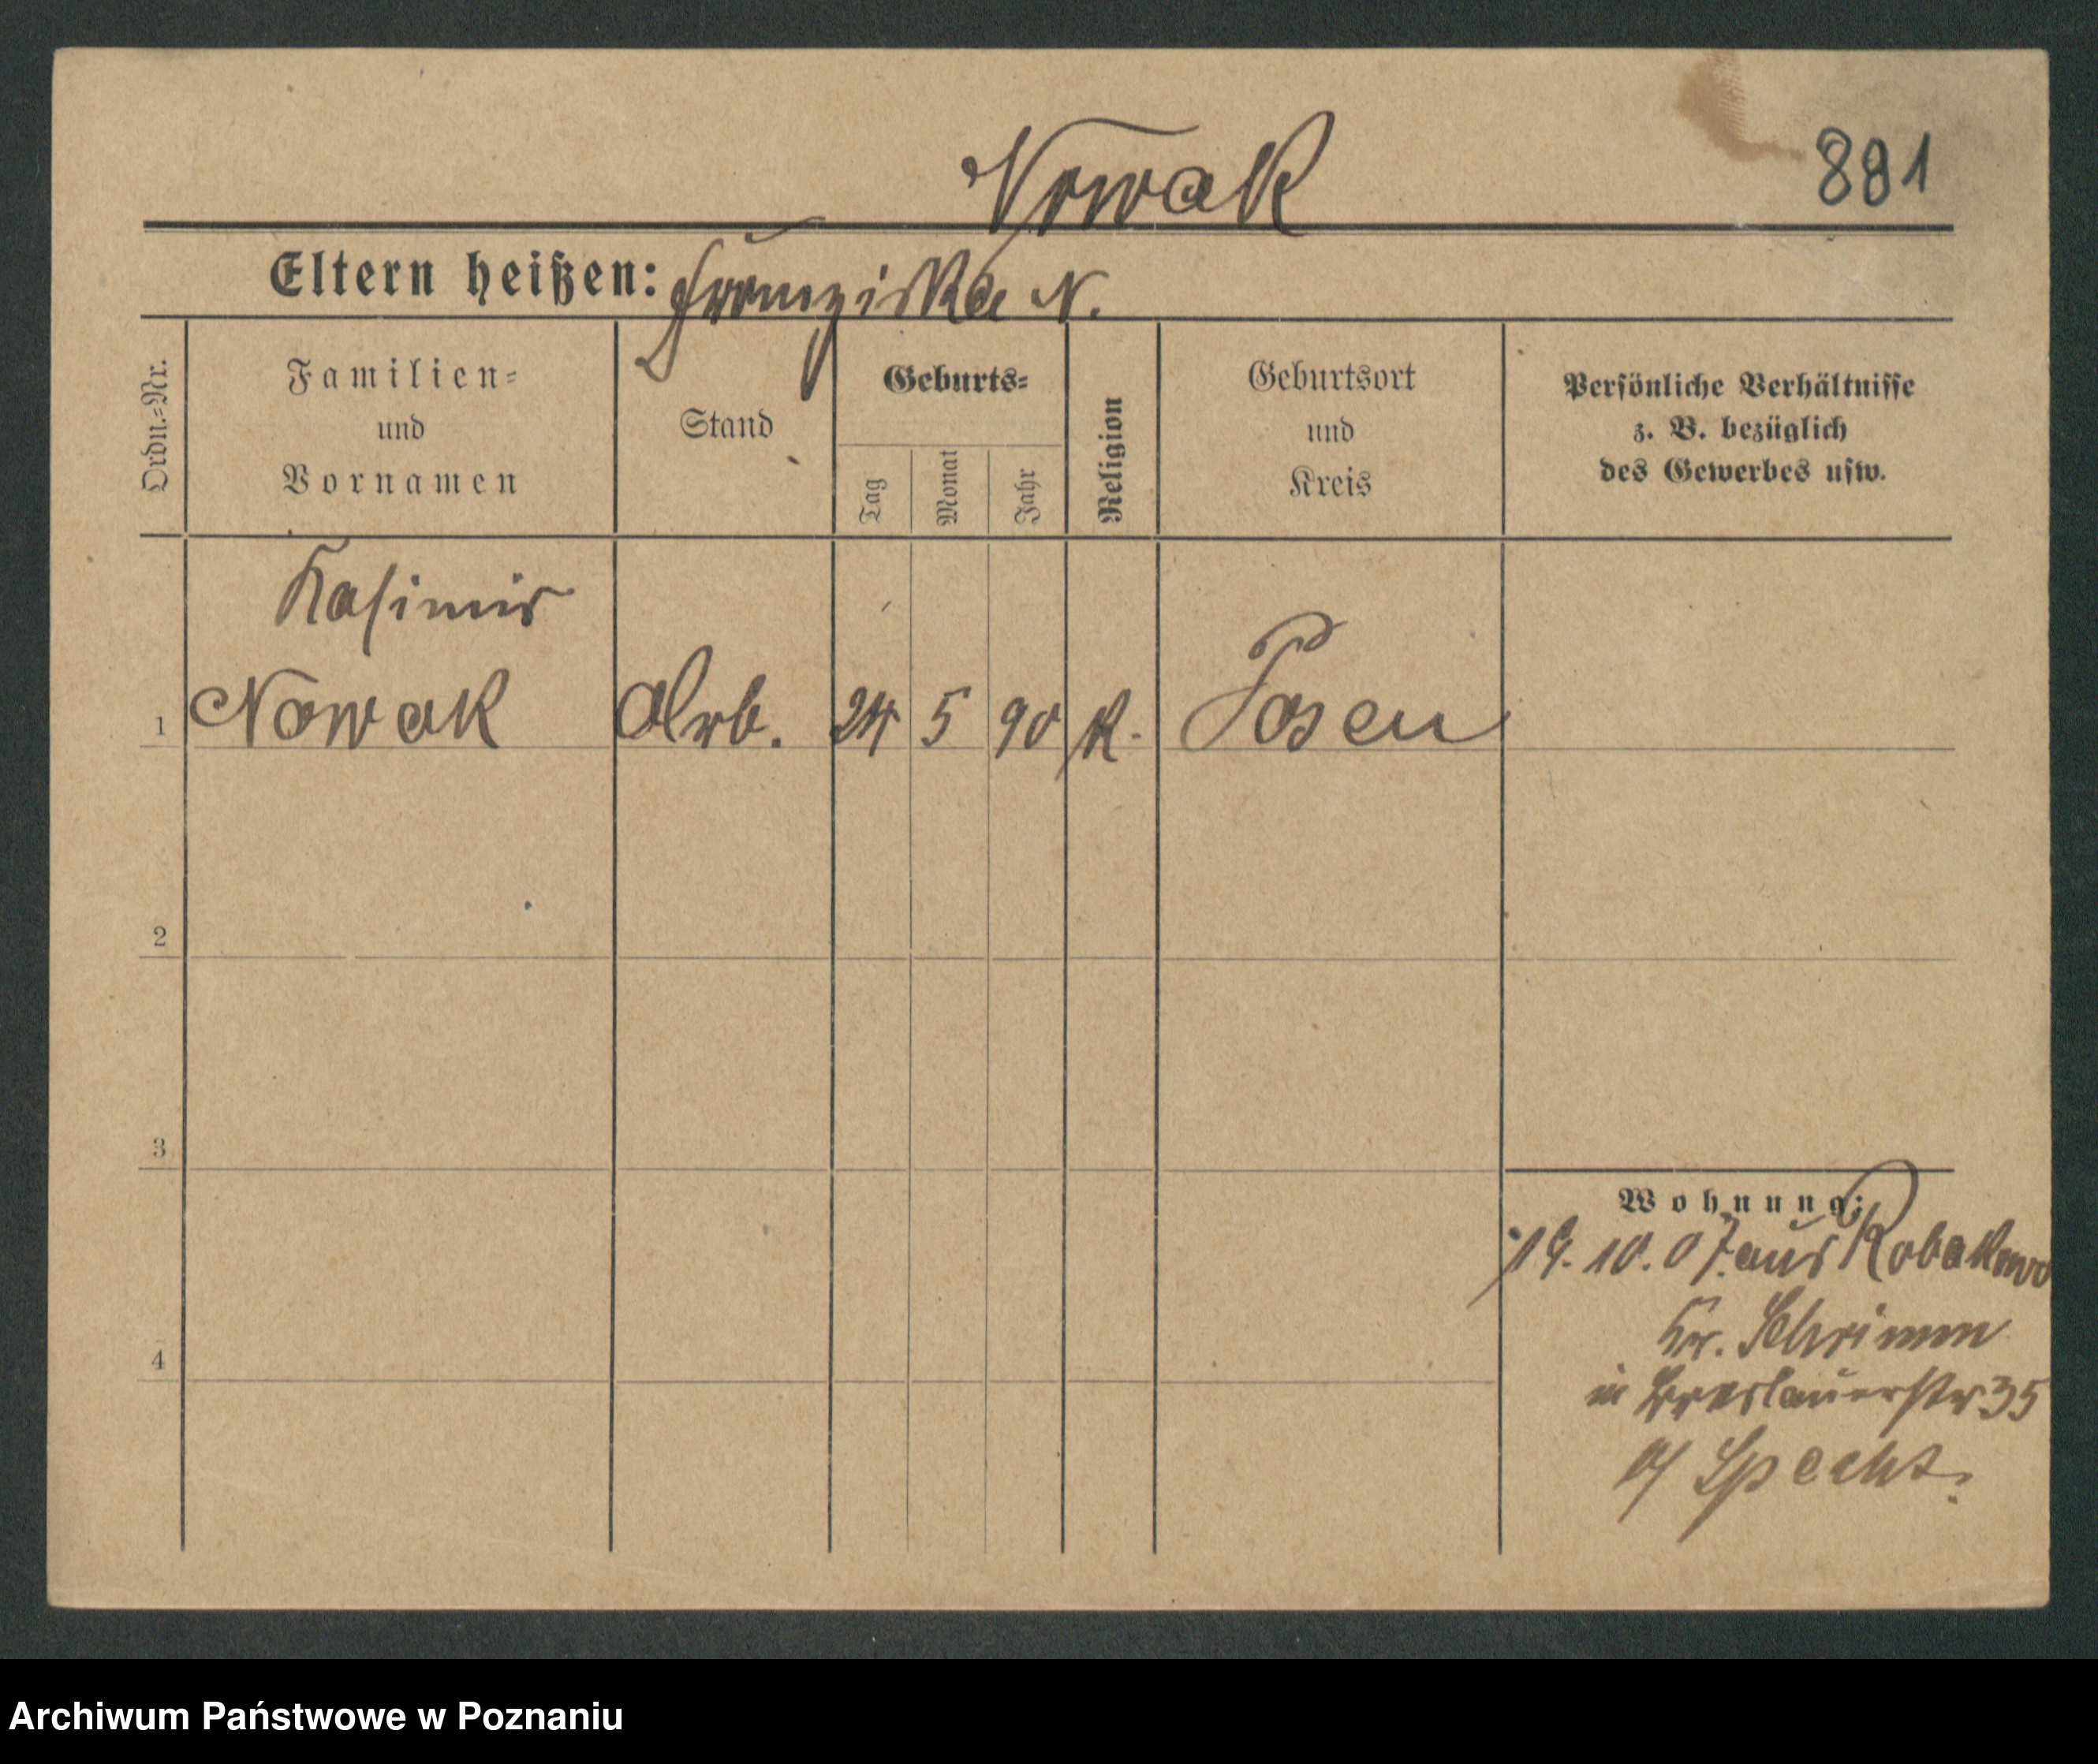 Nowak
881
Eltern heißen: Franziska N.
Ordn.=Nr.
Familien=
und
Vornamen
Stand
Geburts=
Tag
Monat
Jahr
Religion
Geburtsort
und
Kreis
Persönliche Verhältnisse
z. B. bezüglich
des Gewerbes usw.
Kasimir
1 Nowak Arb. 24 5 90 k. Posen
2
3
Wohnung:
19. 10. 07. aus Robakowo
Kr. Schrimm
4
in Breslauerstr 35
b/ Specht.
Archiwum Państwowe w Poznaniu